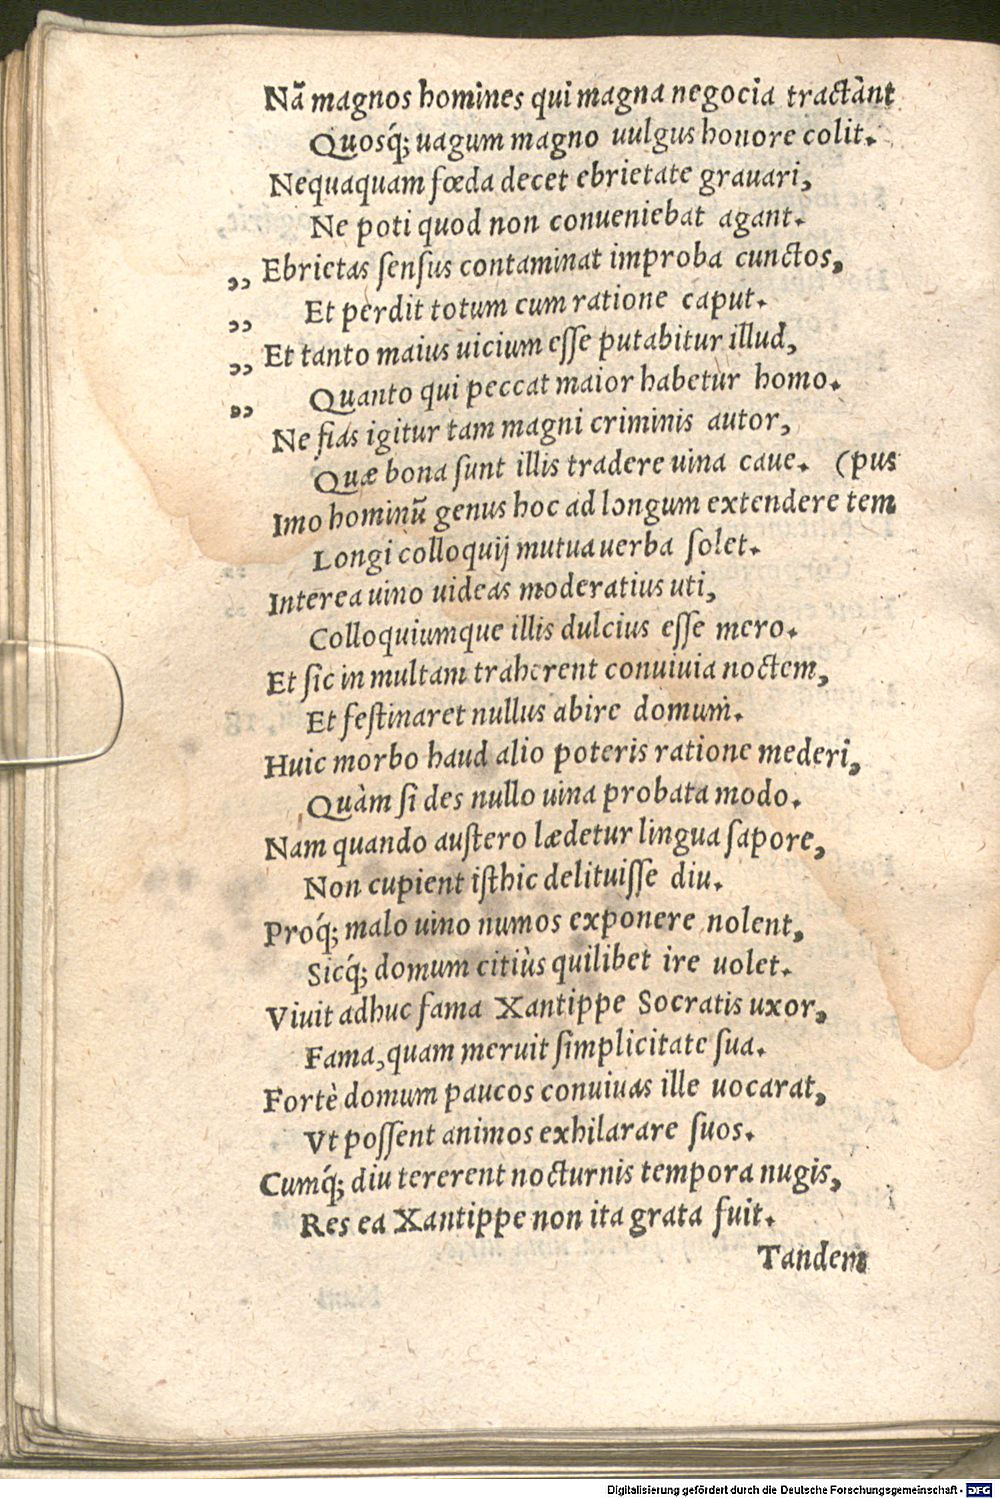 Nã magnos homines qui magna negocia tractànt
Quosq́; uagum magno uulgus honore colit.
Nequaquam fœda decet ebrietate grauari,
Ne poti quod non conueniebat agant.
„ Ebrietas ſenſus contaminat improba cunctos,
„ Et perdit totum cum ratione caput.
„ Et tanto maius uicium eſſe putabitur illud,
„ Quanto qui peccat maior habetur homo.
Ne fias igitur tam magni criminis autor,
Quæ bona ſunt illis tradere uina caue. (pus
Imo hominũ genus hoc ad longum extendere tem
Longi colloquij mutua uerba ſolet.
Interea uino uideas moderatius uti,
Colloquiumque illis dulcius eſſe mero.
Et ſic in multam traherent conuiuia noctem,
Et feſtinaret nullus abire domum.
Huic morbo haud alio poteris ratione mederi,
Quàm ſi des nullo uina probata modo.
Nam quando auſtero lædetur lingua ſapore,
Non cupient iſthic delituiſſe diu.
Proq́; malo uino numos exponere nolent,
Sicq́; domum citiùs quilibet ire uolet.
Viuit adhuc fama Xantippe Socratis uxor,
Fama, quam meruit ſimplicitate ſua.
Fortè domum paucos conuiuas ille uocarat,
Vt poſſent animos exhilarare ſuos.
Cumq́; diu tererent nocturnis tempora nugis,
Res ea Xantippe non ita grata fuit.
Tandem
Digitalisierung gefördert durch die Deutsche Forschungsgemeinschaft - DFG